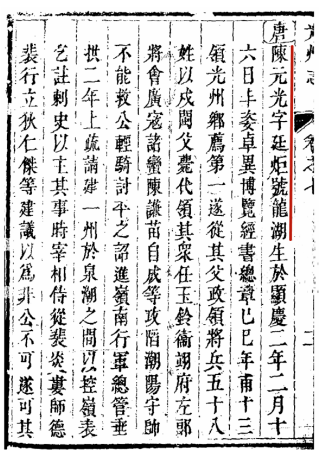 唐陳元光字廷炬號龍湖生於顯慶二年二月十
六日丰姿卓異博覽經書總章己巳年甫十三
領光州鄉薦第一遂從其父政領將兵五十八
姓以戍閩父薨代領其衆任玉鈐衛翊府左郎
將會廣寇諸蠻陳謙苗自成等攻陷潮陽守帥
不能救公輕騎討平之詔進嶺南行軍總管垂
拱二年上疏請建一州於泉潮之間以控嶺表
乞註刺史以主其事時宰相侍從裴炎婁師德
裴行立狄仁傑等建議以爲非公不可遂可其
光州志
卷之七